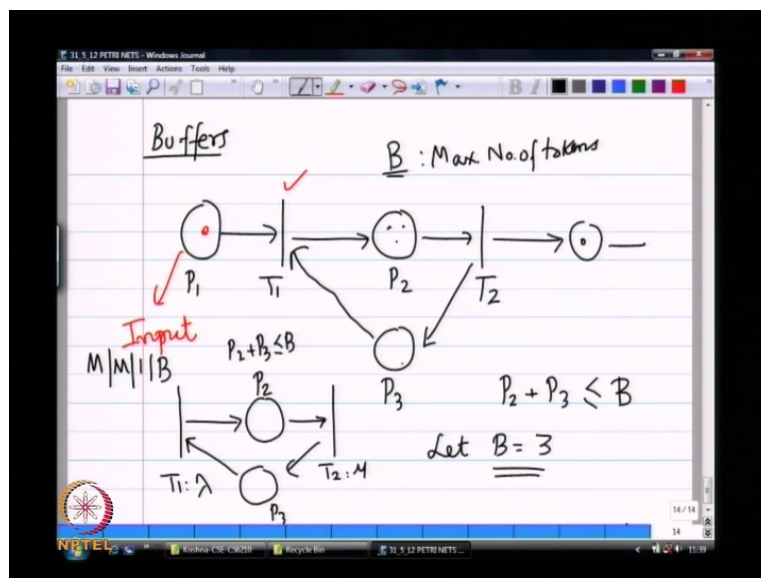 31_5_12 PETRI NETS - Windows Journal
File Edit View Insert Actions Tools Help
B I
Buffers
B : Max No. of tokens
P1
T1
P2
T2
P3
Input
M|M|1|B
P2+P3≤B
P2
T1:λ
T2:μ
P3
P2 + P3 ≤ B
Let B = 3
14 / 14
14
NPTEL
Krishna-CSE-CS6210
Recycle Bin
31_5_12 PETRI NETS ...
11:39